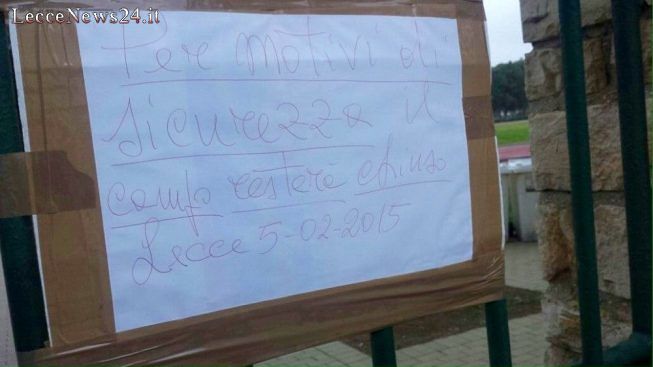 LecceNews24.it
Per motivi di
sicurezza il
campo resterà chiuso
Lecce 5-02-2015